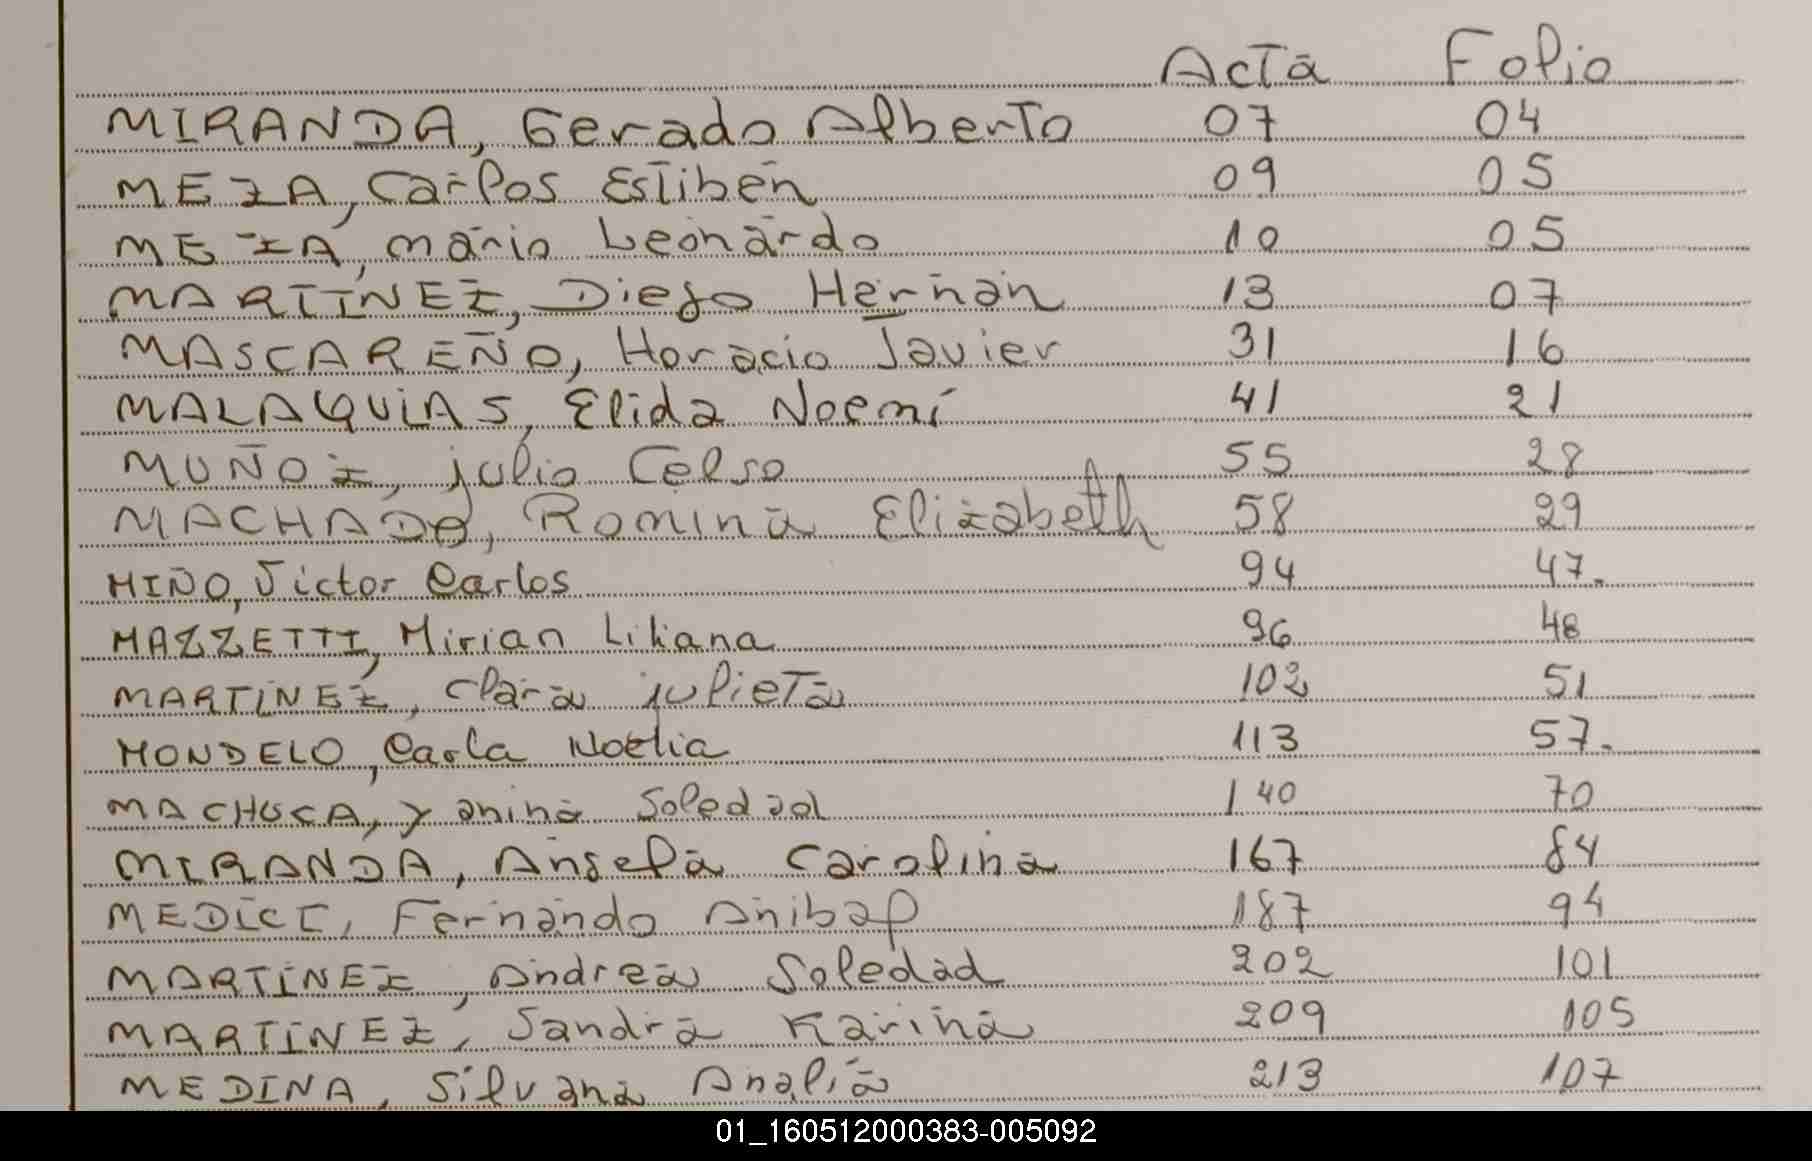 Acta Folio
MIRANDA, Gerado Alberto 07 04
MEZA, Carlos Estiben 09 05
MEZA, Mario Leonardo 10 05
MARTINEZ, Diego Hernan 13 07
MASCAREÑO, Horacio Javier 31 16
MALAQUIAS, Elida Noemí 41 21
MUÑOZ, julio Celso 55 28
MACHADO, Romina Elizabeth 58 29
MIÑO, Victor Carlos 94 47.
MAZZETTI, Mirian Liliana 96 48
MARTINEZ, Clara julieta 102 51
MONDELO, Carla Noelia 113 57.
MACHUCA, Yanina Soledad 140 70
MIRANDA, Angela Carolina 167 84
MEDICI, Fernando Anibal 187 94
MARTINEZ, Andrea Soledad 202 101
MARTINEZ, Sandra Karina 209 105
MEDINA, Silvana Analia 213 107
01_160512000383-005092